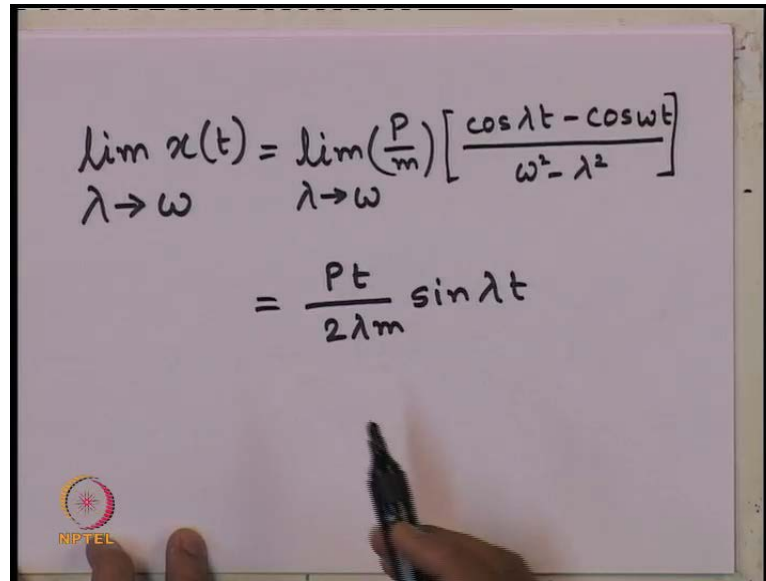 lim x(t) = lim (P/m) [ (cos λt - cos ωt) / (ω² - λ²) ]
λ → ω λ → ω
= Pt / 2λm sin λt
NPTEL